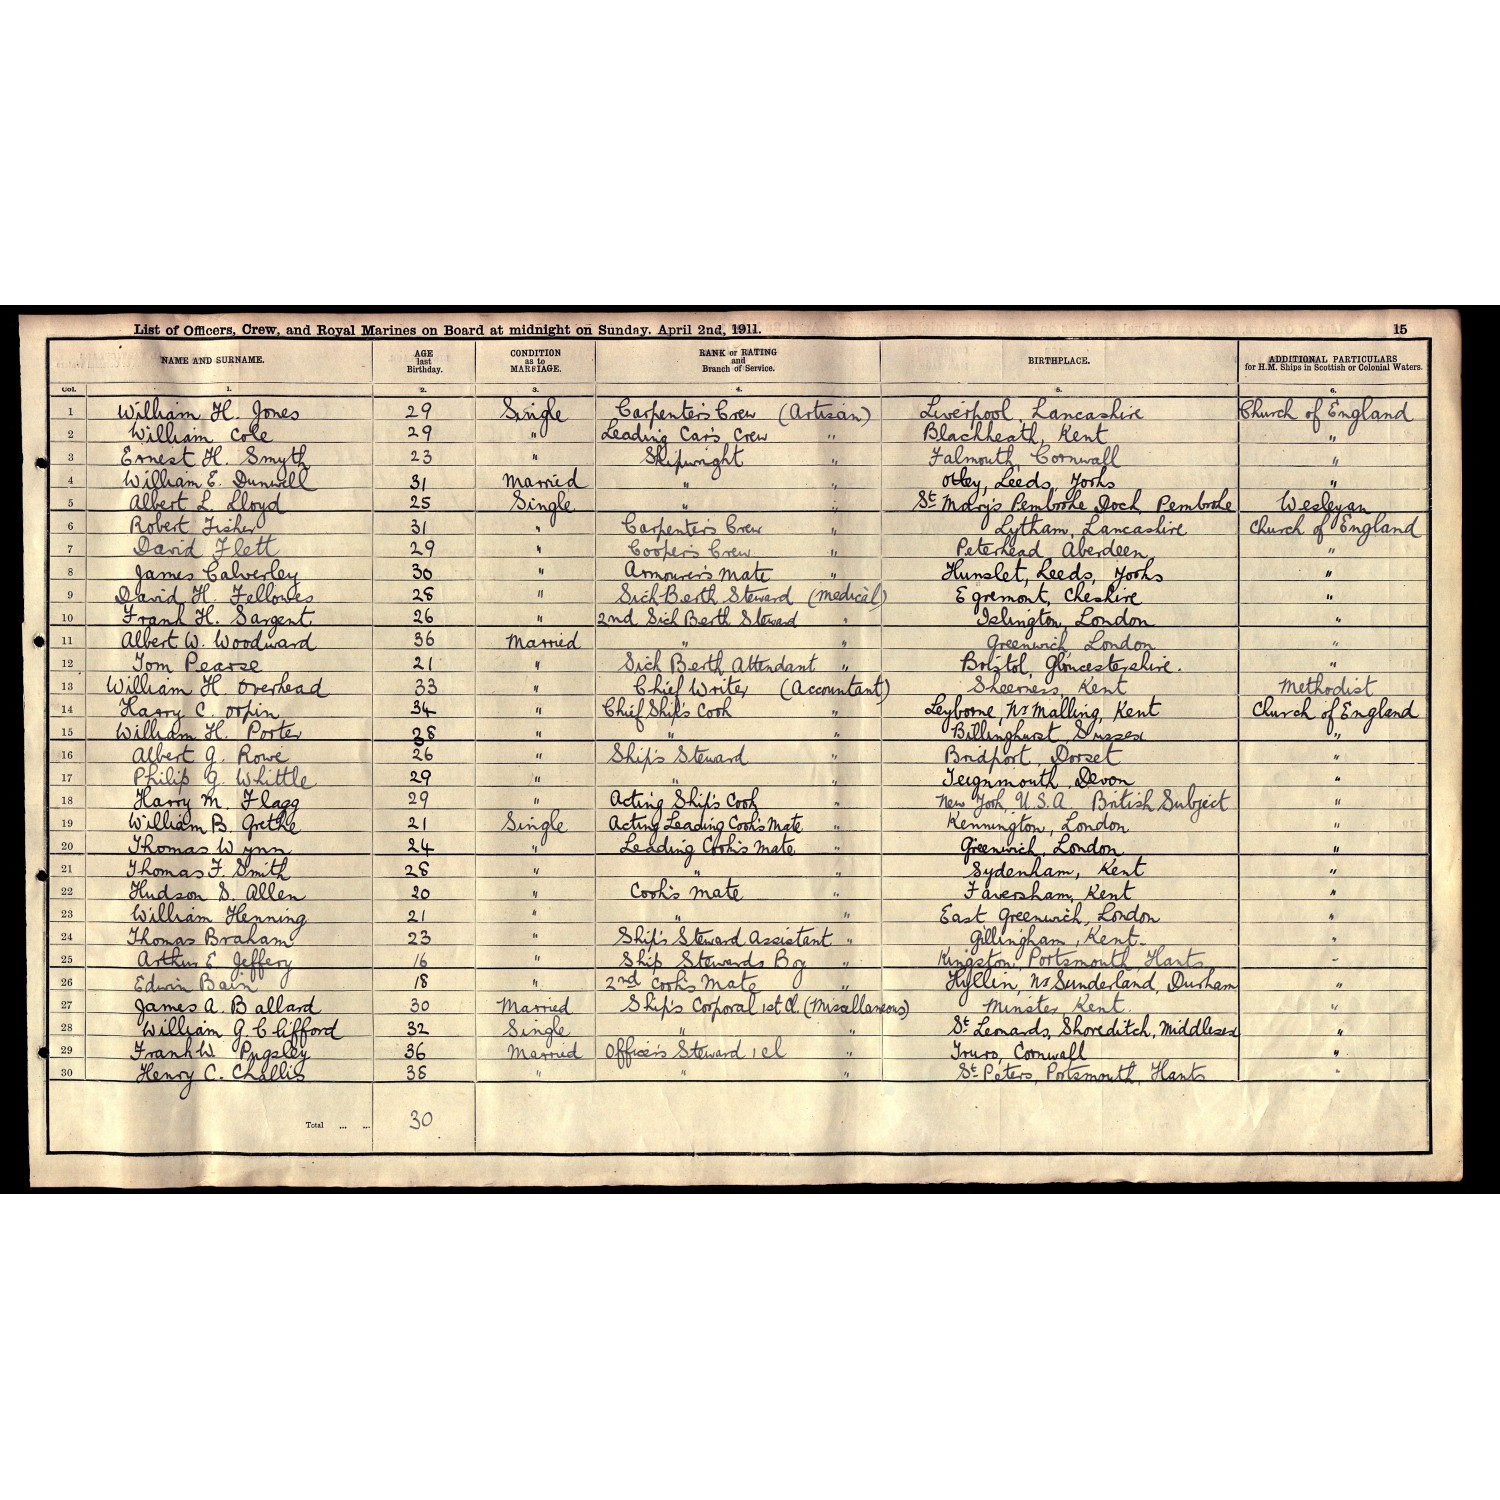 List of Officers, Crew, and Royal Marines on Board at midnight on Sunday, April 2nd, 1911. 15
NAME AND SURNAME. AGE last Birthday. CONDITION as to MARRIAGE. RANK or RATING and Branch of Service. BIRTHPLACE. ADDITIONAL PARTICULARS for H.M. Ships in Scottish or Colonial Waters.
Col. 1. 2. 3. 4. 5. 6.
1 William H. Jones 29 Single Carpenter's Crew (Artisan) Liverpool, Lancashire Church of England
2 William Cole 29 " Leading Car's Crew " Blackheath, Kent "
3 Ernest H. Smyth 23 " Shipwright " Falmouth, Cornwall "
4 William E. Dunwell 31 Married " " Otley, Leeds, Yorks "
5 Albert L. Lloyd 25 Single " " St Mary's Pembroke Dock, Pembroke Wesleyan
6 Robert Fisher 31 " Carpenter's Crew " Lytham, Lancashire Church of England
7 David Flett 29 " Cooper's Crew " Peterhead Aberdeen "
8 James Calverley 30 " Armourer's Mate " Hunslet, Leeds, Yorks "
9 David H. Fellowes 28 " Sick Berth Steward (Medical) Egremont, Cheshire "
10 Frank H. Sargent 26 " 2nd Sick Berth Steward " Islington, London "
11 Albert W. Woodward 36 Married " " Greenwich, London "
12 Tom Pearse 21 " Sick Berth Attendant " Bristol, Gloucestershire. "
13 William H. Overhead 33 " Chief Writer (Accountant) Sheerness, Kent Methodist
14 Harry C. Orpin 34 " Chief Ship's Cook " Leyborne, Nr Malling, Kent Church of England
15 William H. Porter 38 " " " Billinghurst, Sussex "
16 Albert G. Rowe 26 " Ship's Steward " Bridport, Dorset "
17 Philip G. Whittle 29 " " " Teignmouth, Devon "
18 Harry M. Flagg 29 " Acting Ship's Cook " New York, U.S.A. British Subject "
19 William B. Grethe 21 Single Acting Leading Cook's Mate " Kennington, London "
20 Thomas Wynn 24 " Leading Cook's Mate " Greenwich, London "
21 Thomas F. Smith 28 " " " Sydenham, Kent "
22 Hudson S. Allen 20 " Cook's Mate " Faversham, Kent "
23 William Henning 21 " " " East Greenwich, London "
24 Thomas Braham 23 " Ship's Steward Assistant " Gillingham, Kent "
25 Arthur E Jeffery 16 " Ship Stewards Boy " Kingston, Portsmouth, Hants "
26 Edwin Bain 18 " 2nd Cook's Mate " Hyllin, Nr Sunderland, Durham "
27 James A. Ballard 30 Married Ship's Corporal 1st Cl. (Miscellaneous) Minster, Kent. "
28 William G. Clifford 32 Single " " St Leonards, Shoreditch, Middlesex "
29 Frank W. Pugsley 36 Married Officer's Steward 1 cl " Truro, Cornwall "
30 Henry C. Challis 38 " " " St Peters, Portsmouth, Hants "
Total ... ... 30